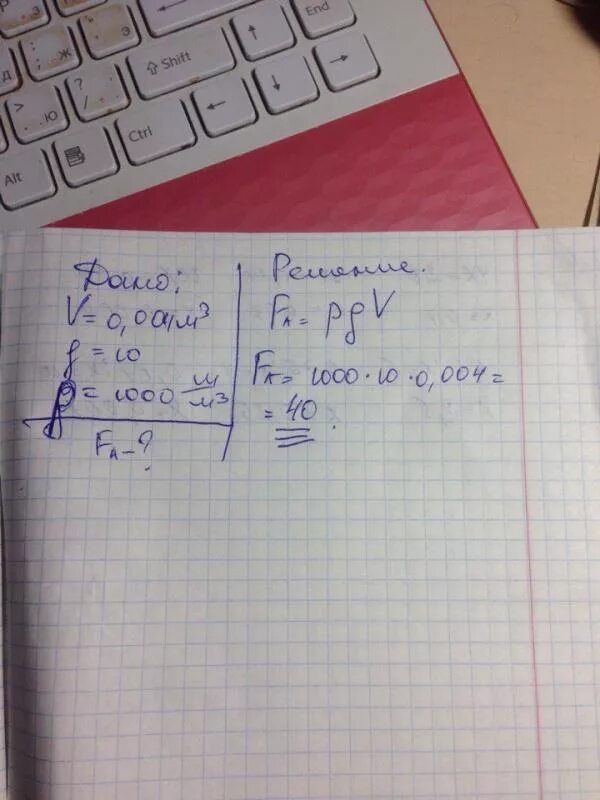 End
э
ж
Shift
ю
Ctrl
Alt
Дано:
V = 0,004 м³
g = 10
ρ = 1000 м/м³
Fₐ - ?
Решение.
Fₐ = ρgV
Fₐ = 1000 · 10 · 0,004 =
= 40.